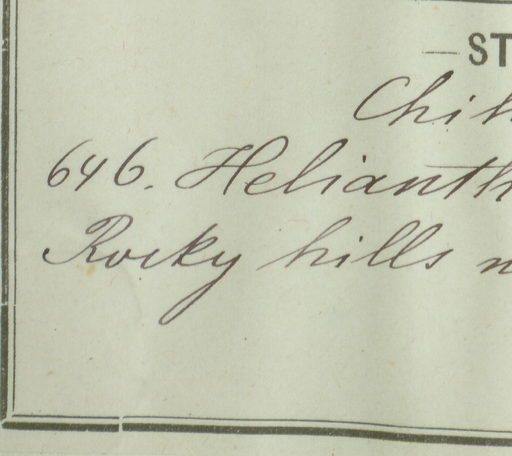 — ST
Chih
646. Helianth
Rocky hills n